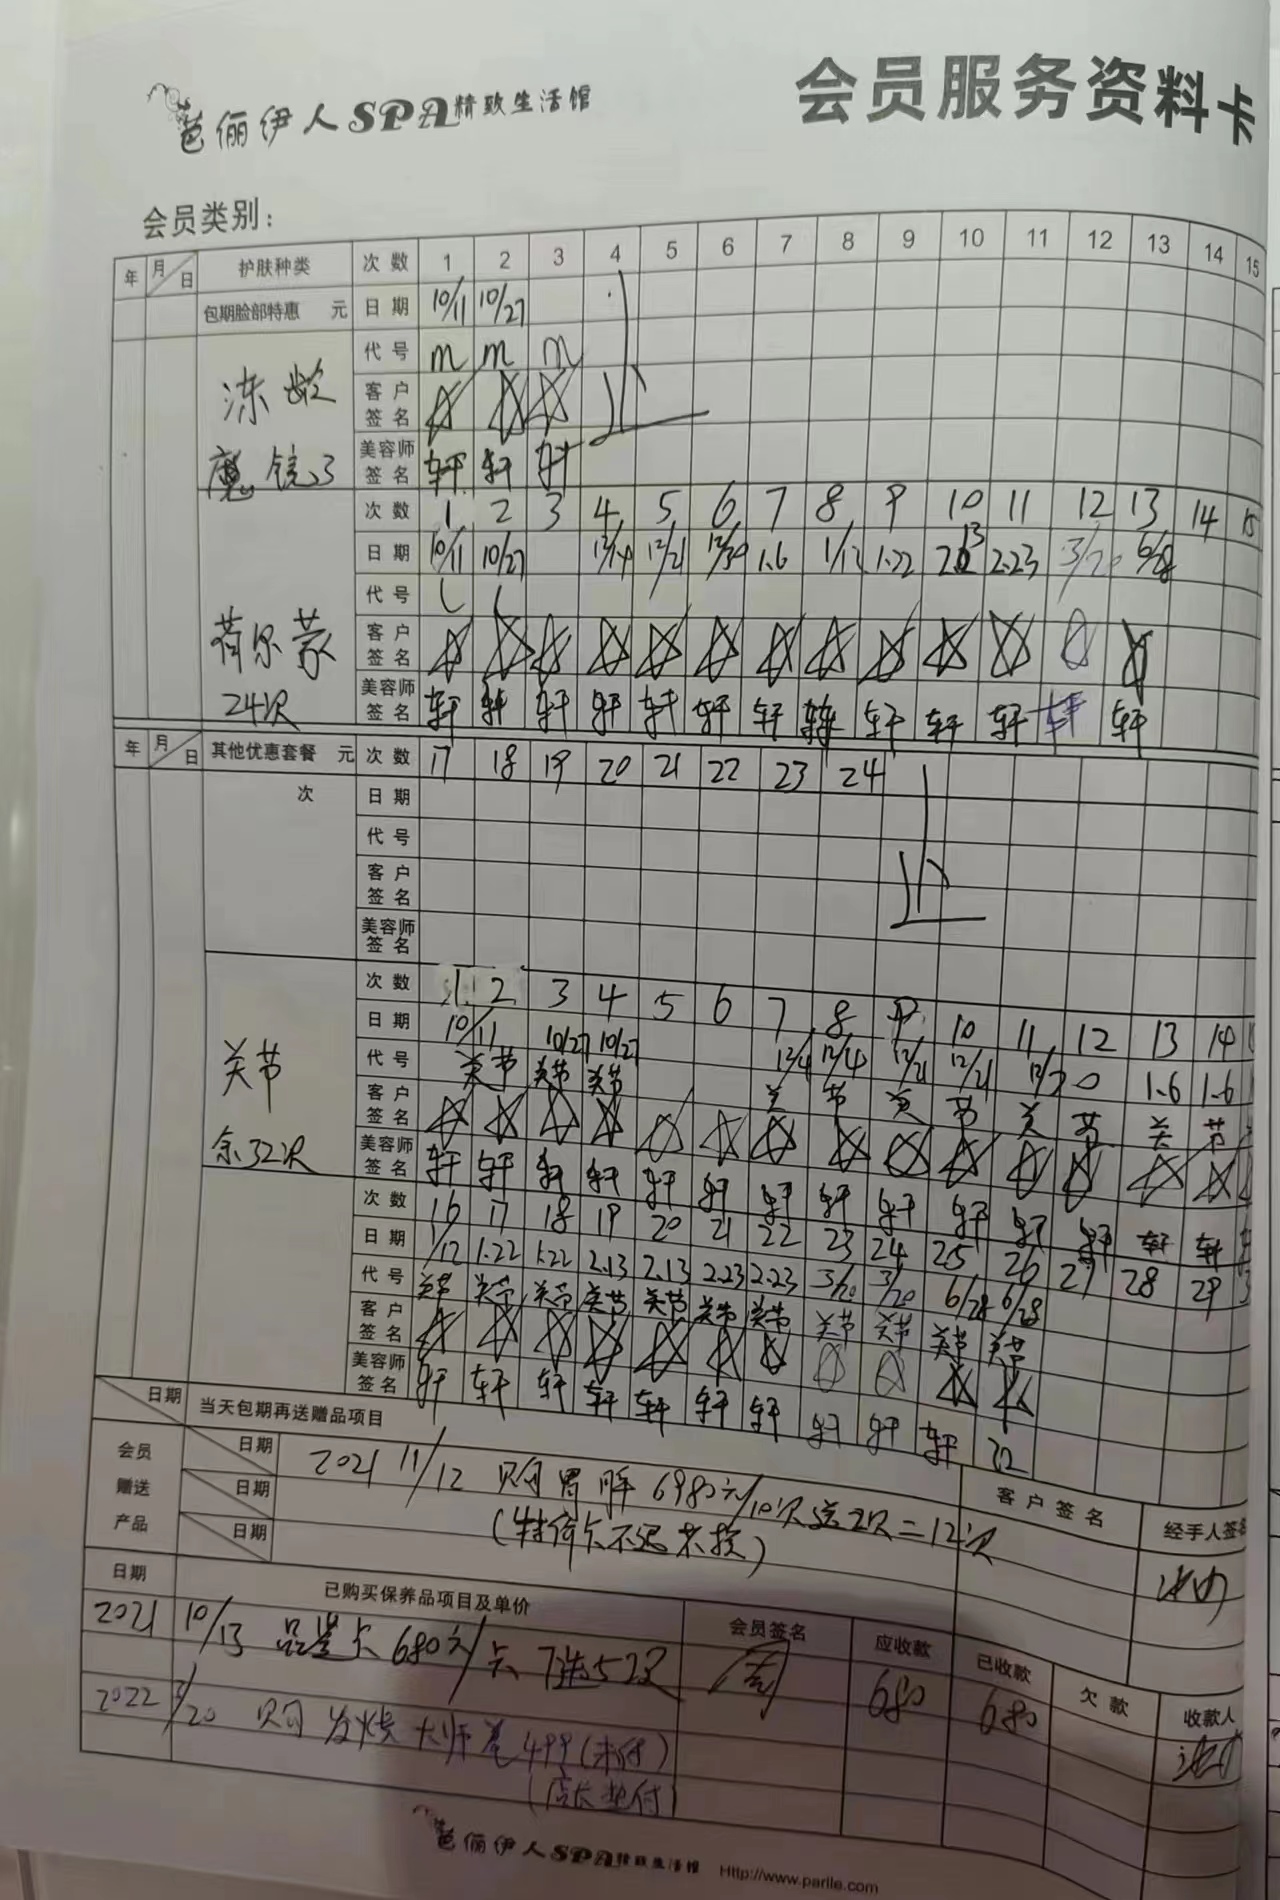 芭俪伊人SPA精致生活馆
会员服务资料卡
会员类别：
年 月 日 护肤种类 次数 1 2 3 4 5 6 7 8 9 10 11 12 13 14 15
包期脸部特惠 元 日期 10/11 10/27
冻龄 代号 m m m
客户签名
魔镜 3 美容师签名 轩 轩 轩
止
次数 1 2 3 4 5 6 7 8 9 10 11 12 13 14 15
日期 10/11 10/27 12/14 12/21 12/30 1.6 1/12 1.22 2.13 2.23 3/20 6/28
代号
荷尔蒙 客户签名
24次 美容师签名 轩 轩 轩 轩 轩 轩 轩 轩 轩 轩 轩 轩 轩
年 月 日 其他优惠套餐 元 次数 17 18 19 20 21 22 23 24
次 日期
代号
客户签名
美容师签名
止
次数 1 2 3 4 5 6 7 8 9 10 11 12 13 14
日期 10/11 10/27 10/27 12/4 12/4 12/21 12/21 12/30 1.6 1.6
关节 代号 关节 关节 关节 关 节 关 节 关 节 关 节
客户签名
余32次 美容师签名 轩 轩 轩 轩 轩 轩 轩 轩 轩 轩 轩 轩 轩 轩
次数 16 17 18 19 20 21 22 23 24 25 26 27 28 29
日期 1/12 1.22 1.22 2.13 2.13 2.23 2.23 3/20 3/20 6/28 6/28
代号 关节 关节 关节 关节 关节 关节 关节 关节 关节 关节 关节
客户签名
美容师签名 轩 轩 轩 轩 轩 轩 轩 轩 轩 轩
日期 当天包期再送赠品项目
会员赠送产品 日期 2021 11/12 购胃胖6980元/10次送2次=12次
日期 (特价卡不退不换)
日期
客户签名 经手人签名
日期 已购买保养品项目及单价 会员签名 应收款 已收款 欠款 收款人
2021 10/13 品鉴卡680元/卡 7选5次 680 680
2022 /20 购 发烧大师卷499(未付)
(店长垫付)
芭俪伊人SPA精致生活馆 Http://www.parile.com